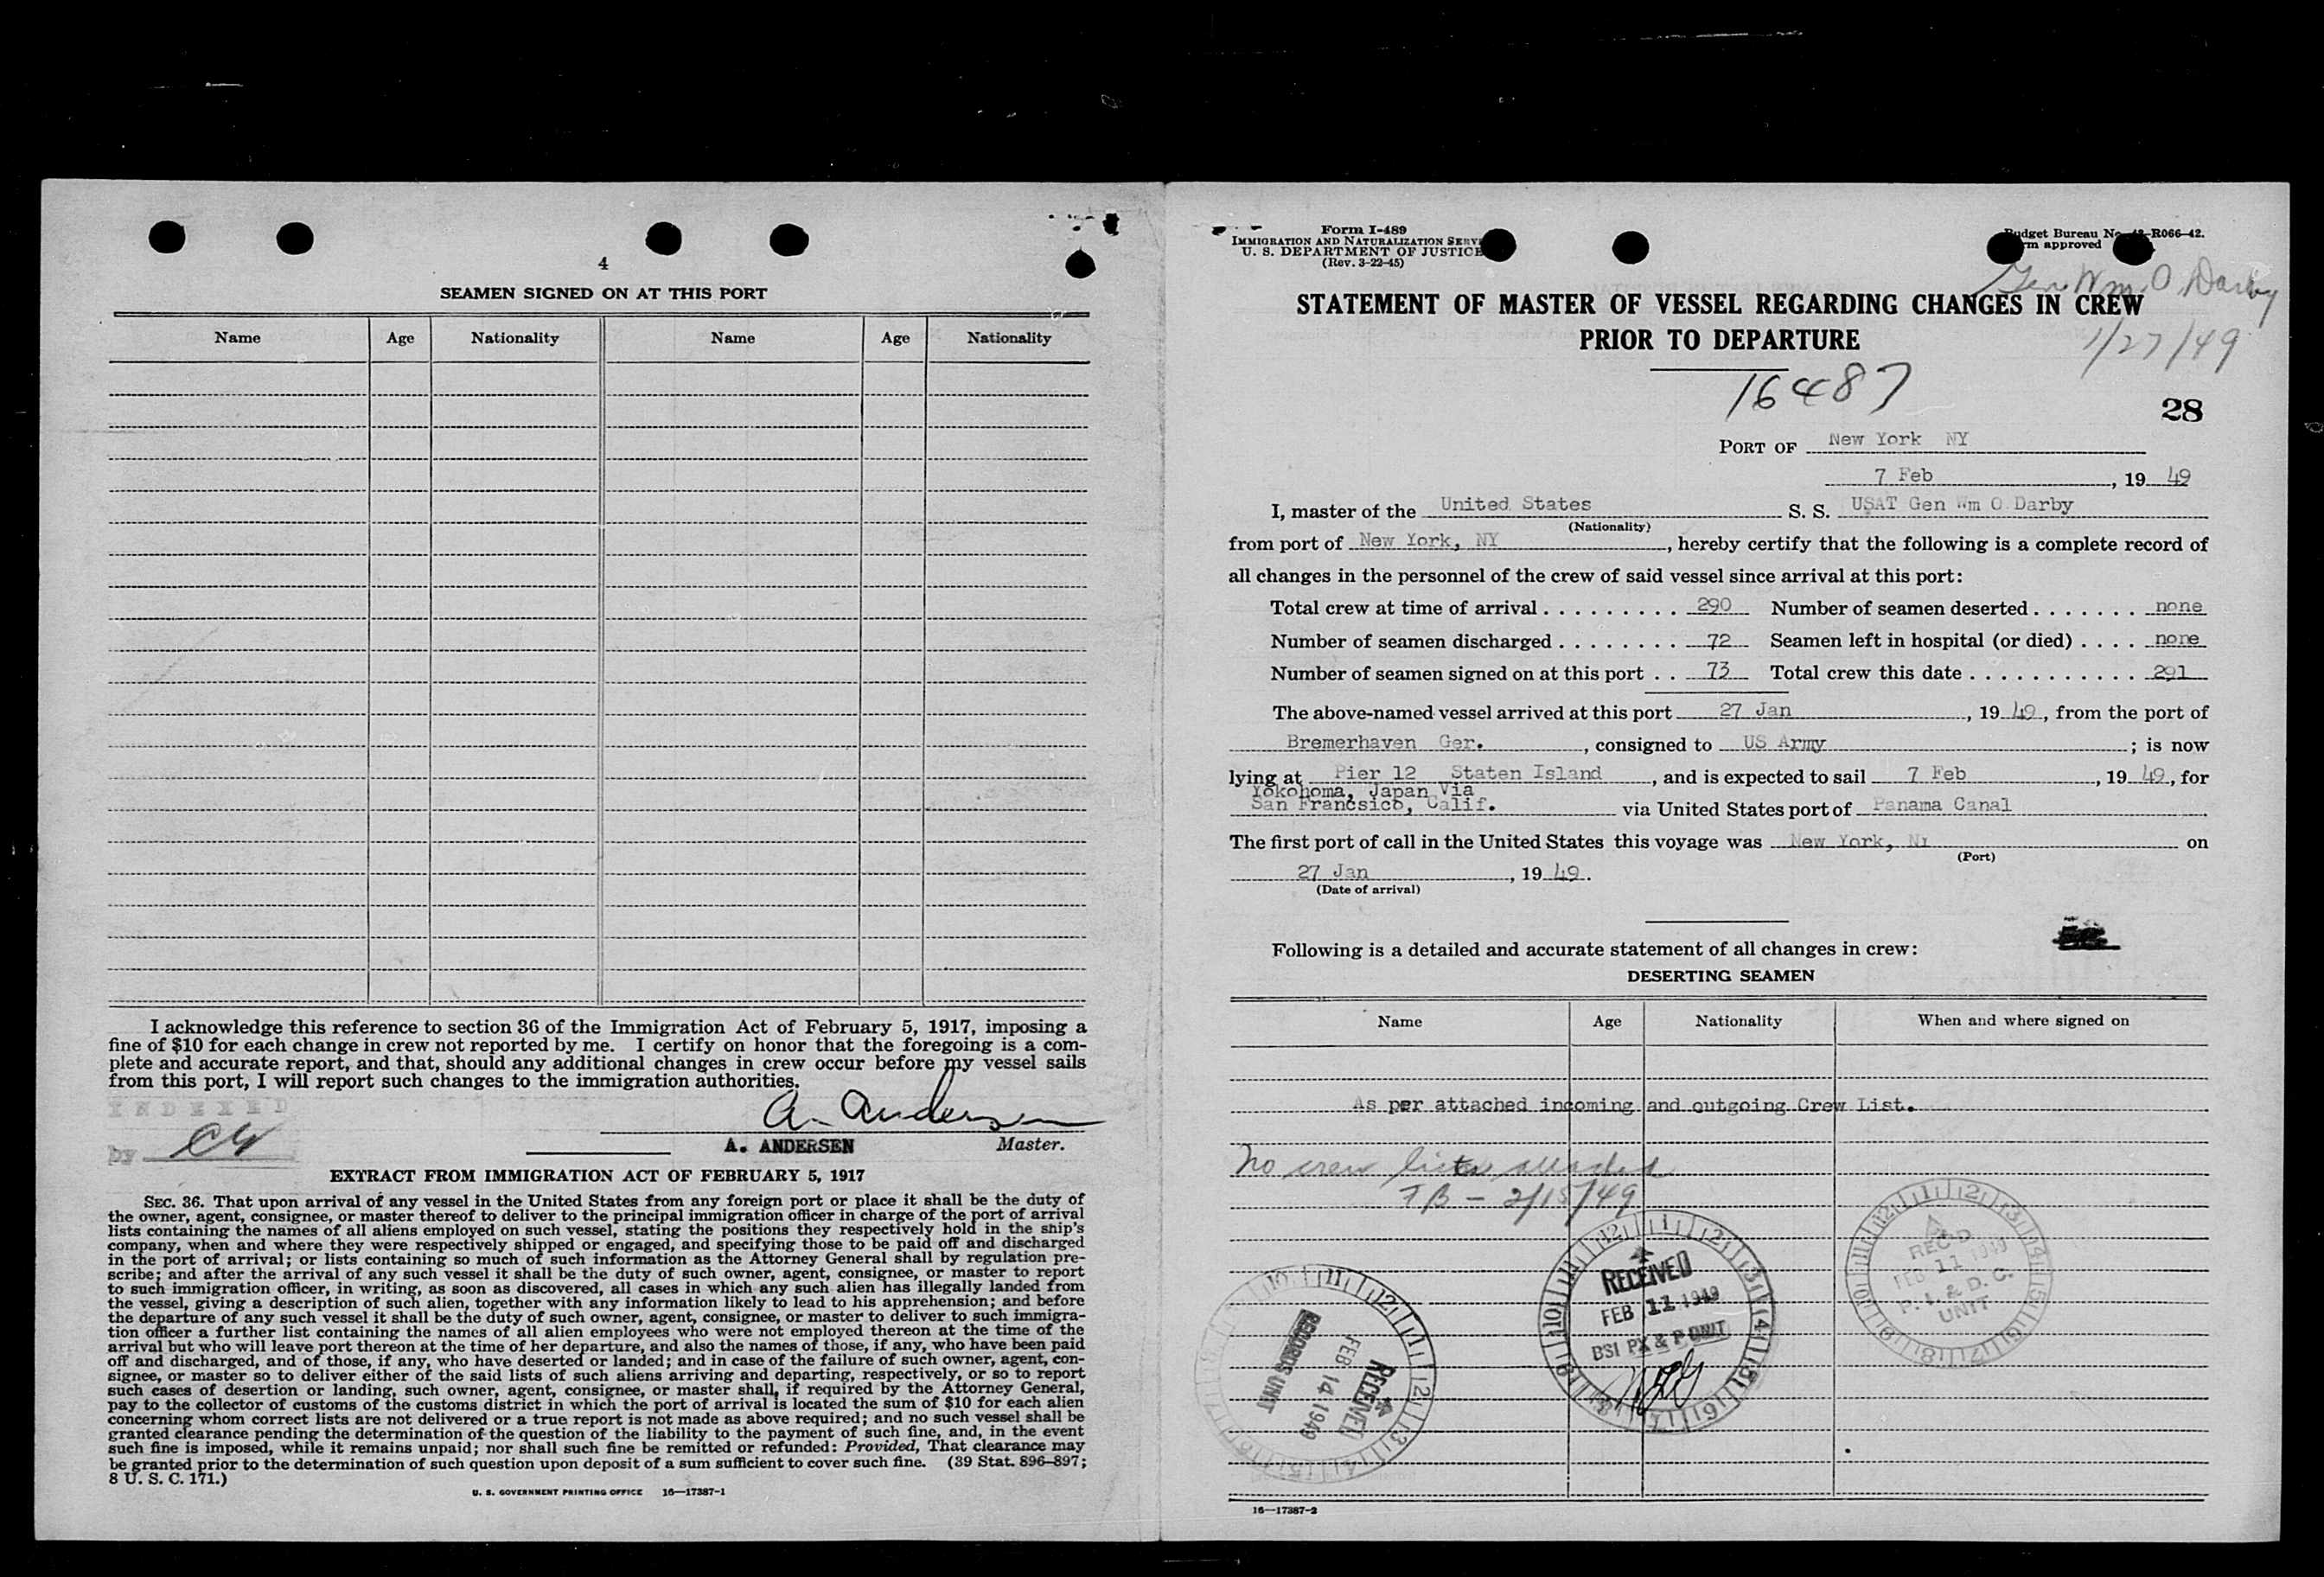 4
SEAMEN SIGNED ON AT THIS PORT
Name Age Nationality Name Age Nationality
I acknowledge this reference to section 36 of the Immigration Act of February 5, 1917, imposing a
fine of $10 for each change in crew not reported by me. I certify on honor that the foregoing is a com-
plete and accurate report, and that, should any additional changes in crew occur before my vessel sails
from this port, I will report such changes to the immigration authorities.
INDEXED
by
A. Andersen
A. ANDERSEN Master.
EXTRACT FROM IMMIGRATION ACT OF FEBRUARY 5, 1917
SEC. 36. That upon arrival of any vessel in the United States from any foreign port or place it shall be the duty of
the owner, agent, consignee, or master thereof to deliver to the principal immigration officer in charge of the port of arrival
lists containing the names of all aliens employed on such vessel, stating the positions they respectively hold in the ship's
company, when and where they were respectively shipped or engaged, and specifying those to be paid off and discharged
in the port of arrival; or lists containing so much of such information as the Attorney General shall by regulation pre-
scribe; and after the arrival of any such vessel it shall be the duty of such owner, agent, consignee, or master to report
to such immigration officer, in writing, as soon as discovered, all cases in which any such alien has illegally landed from
the vessel, giving a description of such alien, together with any information likely to lead to his apprehension; and before
the departure of any such vessel it shall be the duty of such owner, agent, consignee, or master to deliver to such immigra-
tion officer a further list containing the names of all alien employees who were not employed thereon at the time of the
arrival but who will leave port thereon at the time of her departure, and also the names of those, if any, who have been paid
off and discharged, and of those, if any, who have deserted or landed; and in case of the failure of such owner, agent, con-
signee, or master so to deliver either of the said lists of such aliens arriving and departing, respectively, or so to report
such cases of desertion or landing, such owner, agent, consignee, or master shall, if required by the Attorney General,
pay to the collector of customs of the customs district in which the port of arrival is located the sum of $10 for each alien
concerning whom correct lists are not delivered or a true report is not made as above required; and no such vessel shall be
granted clearance pending the determination of the question of the liability to the payment of such fine, and, in the event
such fine is imposed, while it remains unpaid; nor shall such fine be remitted or refunded: Provided, That clearance may
be granted prior to the determination of such question upon deposit of a sum sufficient to cover such fine. (39 Stat. 896–897;
8 U. S. C. 171.)
U. S. GOVERNMENT PRINTING OFFICE 16—17387-1
Form I-489
IMMIGRATION AND NATURALIZATION
U. S. DEPARTMENT OF JUSTICE
(Rev. 3-22-45)
Budget Bureau R066-42.
approved
Gen. Wm. O. Darby
1/27/49
STATEMENT OF MASTER OF VESSEL REGARDING CHANGES IN CREW
PRIOR TO DEPARTURE
16487
28
PORT OF New York NY
7 Feb, 19 49
I, master of the United States S. S. USAT Gen Wm O Darby
(Nationality)
from port of New York, NY, hereby certify that the following is a complete record of
all changes in the personnel of the crew of said vessel since arrival at this port:
Total crew at time of arrival . . . . . . . . . 290 Number of seamen deserted . . . . . . . none
Number of seamen discharged . . . . . . . . 72 Seamen left in hospital (or died) . . . . none
Number of seamen signed on at this port . . 73 Total crew this date . . . . . . . . . . . 291
The above-named vessel arrived at this port 27 Jan, 19 49, from the port of
Bremerhaven Ger., consigned to US Army; is now
lying at Pier 12 Staten Island, and is expected to sail 7 Feb, 19 49, for
Yokohoma, Japan Via
San Francsico, Calif. via United States port of Panama Canal
The first port of call in the United States this voyage was New York, NY on
(Port)
27 Jan, 19 49.
(Date of arrival)
Following is a detailed and accurate statement of all changes in crew:
DESERTING SEAMEN
Name Age Nationality When and where signed on
As per attached incoming and outgoing Crew List.
No crew lists attached
FB - 2/15/49
RECEIVED
FEB 14 1949
RECORDS UNIT
RECEIVED
FEB 11 1949
BSI PX & P UNIT
REC'D
FEB 11 1949
P. I. & D. C.
UNIT
16—17387-2